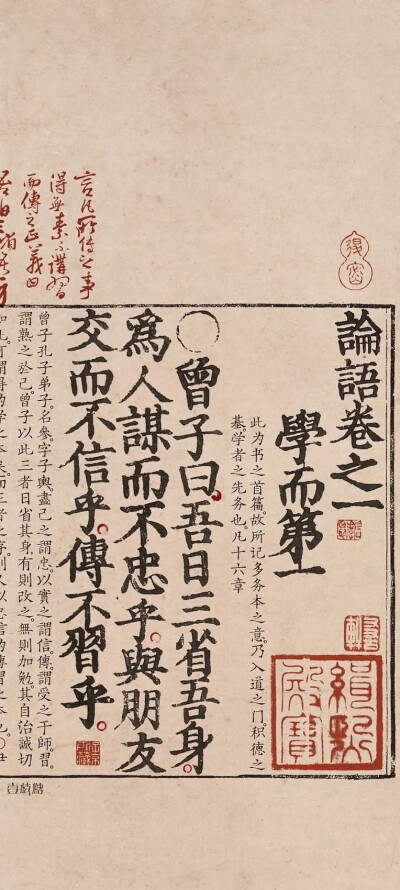 論語卷之一
學而第一
此为书之首篇。故所记多务本之意。乃入道之门。积德之
基。学者之先务也。凡十六章
〇曾子曰。吾日三省吾身。
爲人謀而不忠乎。與朋友
交而不信乎。傳不習乎。
曾子孔子弟子。名參。字子輿。盡己之謂忠。以實之謂信。傳。謂受之于師。習。
謂熟之於己。曾子以此三者日省其身。有則改之。無則加勉。其自治誠切
言凡所傳之事
得無素不講習
而傳之
緝熙殿寶